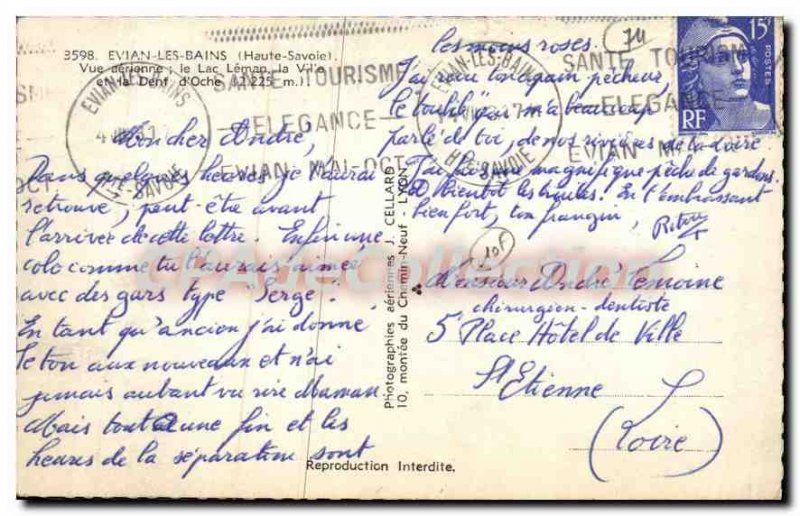 3598. EVIAN-LES-BAINS (Haute-Savoie).
Vue aérienne : le Lac Léman, la Ville
et la Dent d'Oche (2.225 m.)
EVIAN-LES-BAINS
HTE-SAVOIE
SANTE TOURISME
—ELEGANCE—
EVIAN MAI-OCT
Mon cher André,
Dans quelques heures je t'aurai
retrouvé, peut-être avant
l'arrivée de cette lettre. Enfin une
colo comme tu l'aurais aimé
avec des gars type "Serge".
En tant qu'ancien j'ai donné
le ton aux nouveaux et n'ai
jamais autant vu rire Maman
Mais tout a une fin et les
heures de la séparation sont
les moins roses.
J'ai revu ton copain pêcheur
le toubib qui m'a beaucoup
parlé de toi, de nos rivières de la Loire
J'ai fait une magnifique pêche de gardons
et bientôt les truites. En t'embrassant
bien fort, ton frangin,
Photographies aériennes J. CELLARD
10, montée du Chemin-Neuf - LYON
Reproduction Interdite.
74
10F
15F
POSTES
RF
EVIAN-LES-BAINS
HTE-SAVOIE
SANTE TOURISME
—ELEGANCE
EVIAN M
Monsieur André Lemoine
chirurgien-dentiste
5 Place Hôtel de Ville
St Etienne
(Loire)
CPAdeCollection